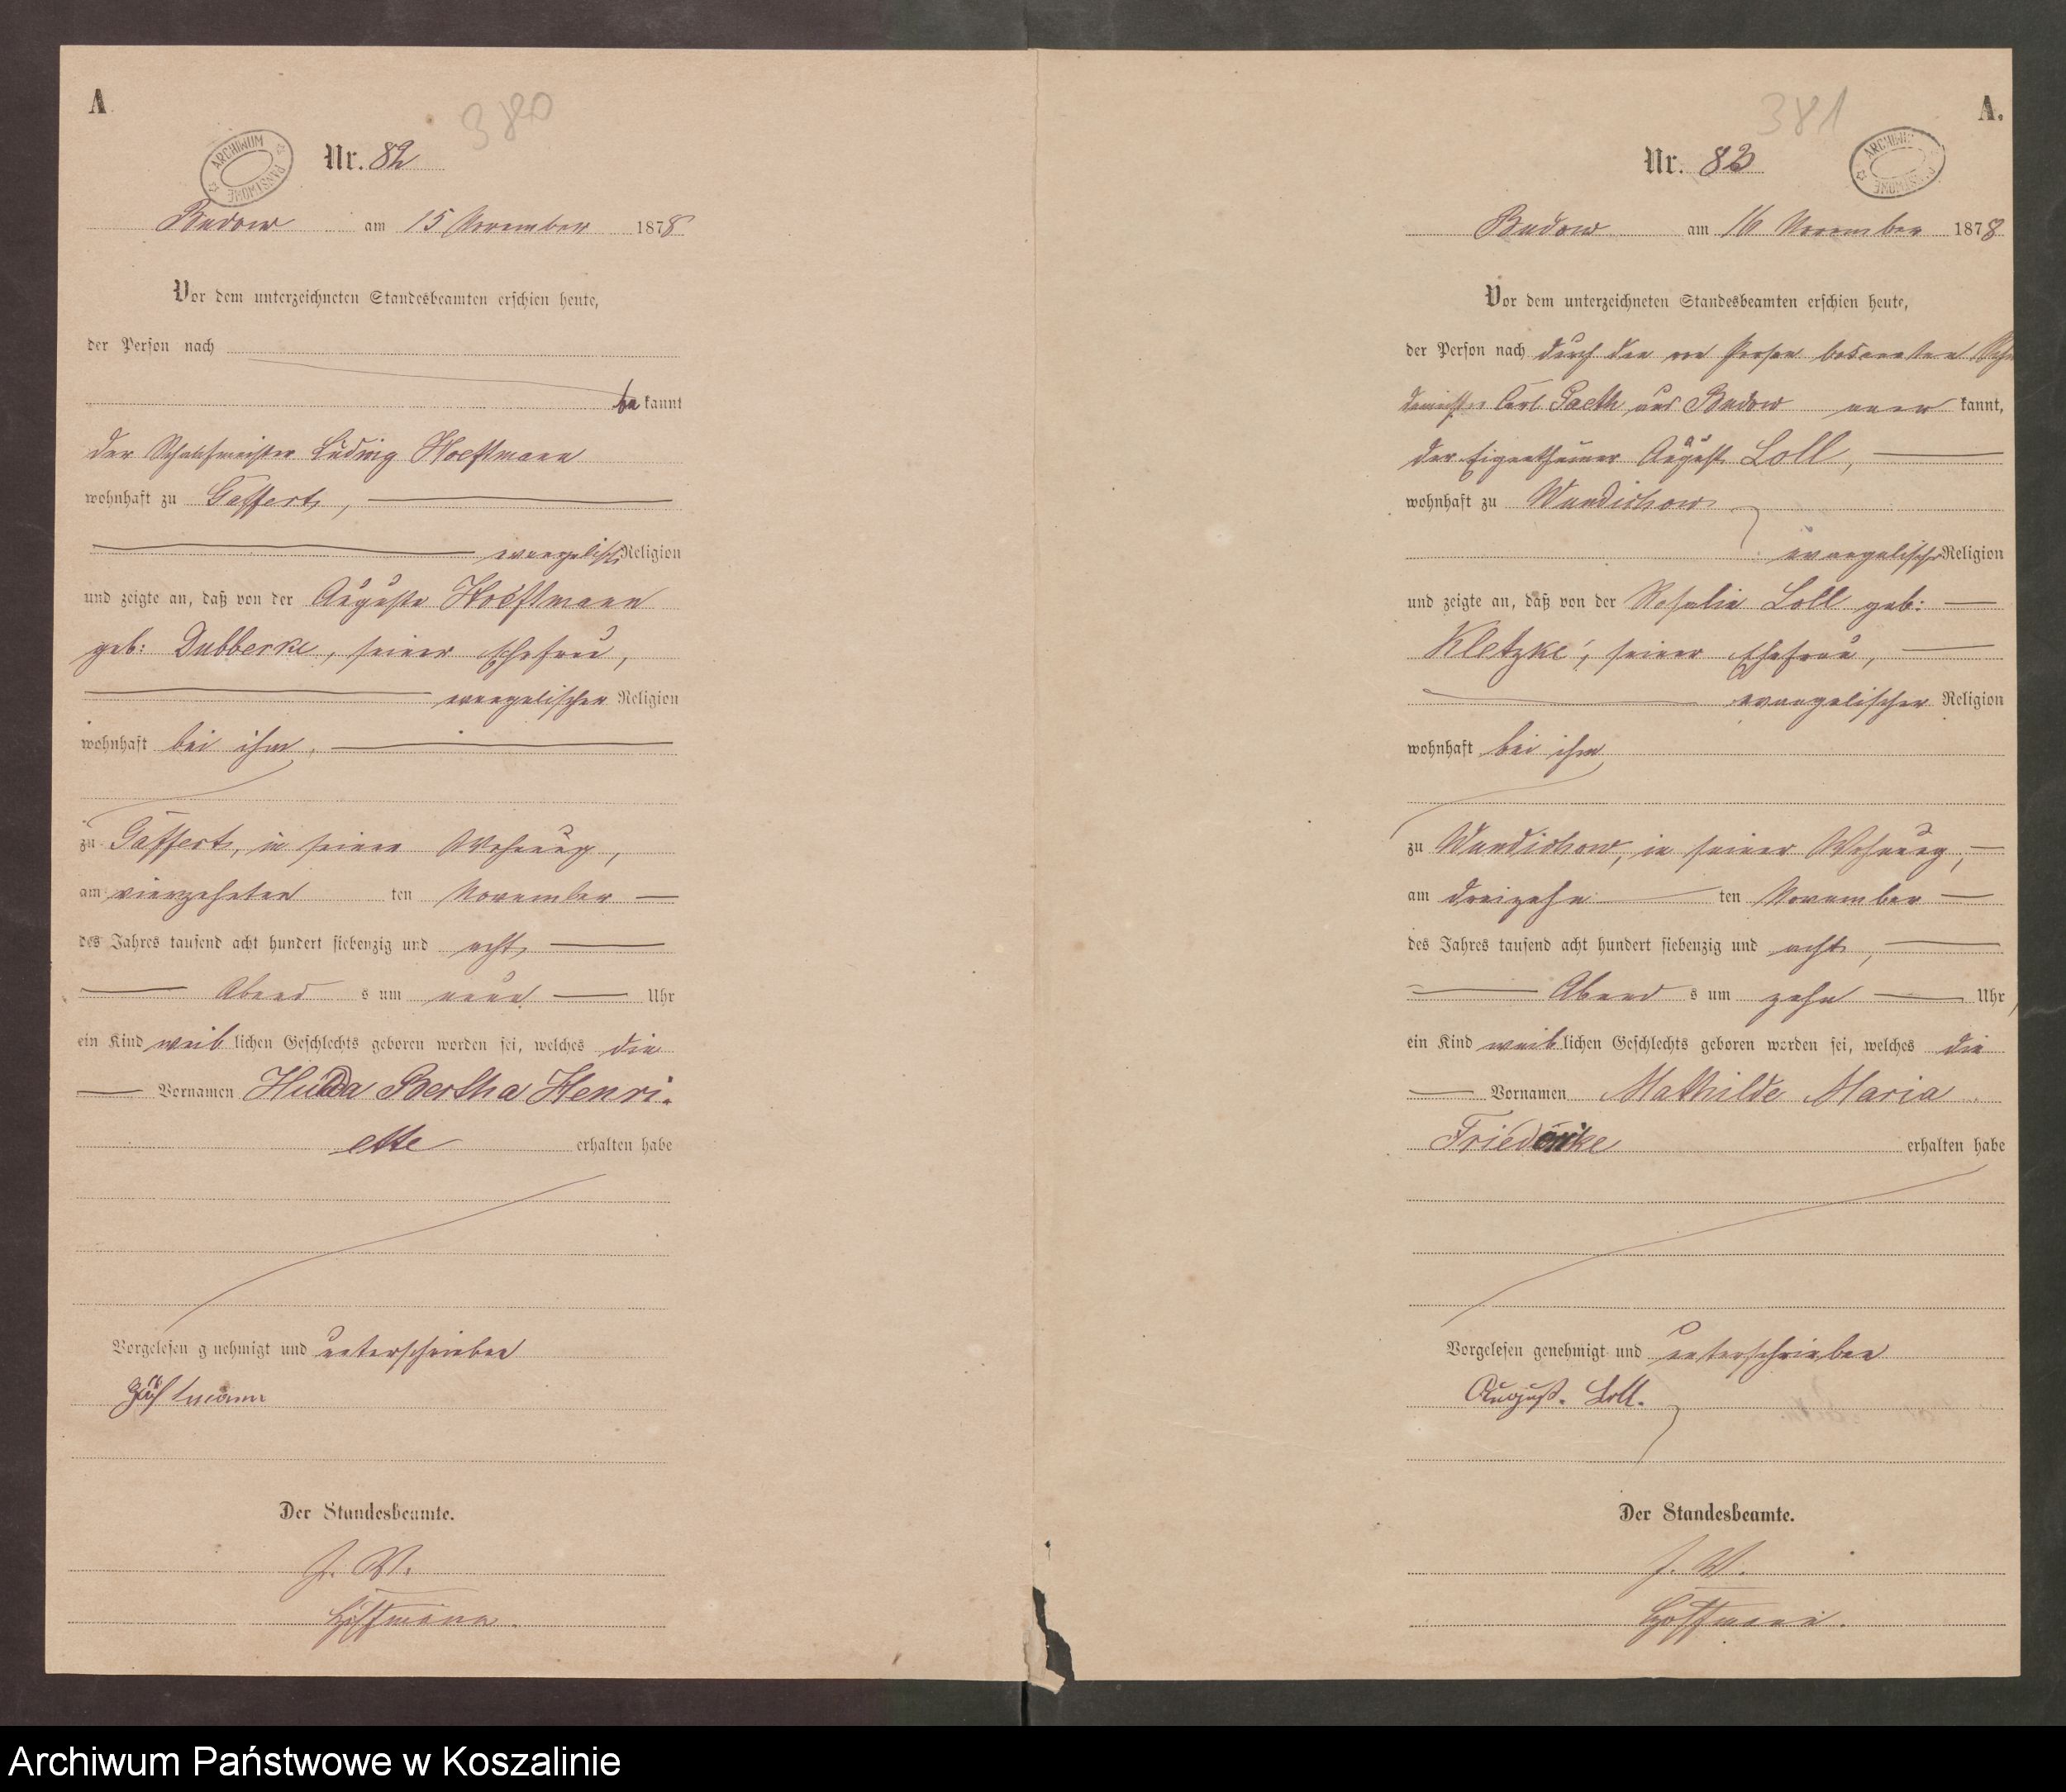 A
380
ARCHIWUM PAŃSTWOWE
Nr. 82
Budow am 15 November 1878
Vor dem unterzeichneten Standesbeamten erschien heute,
der Person nach
be kannt
der Schafmeister Ludwig Hoeftmann
wohnhaft zu Gaffert,
evangelisch Religion
und zeigte an, daß von der Auguste Hoeftmann
geb: Dubberke, seiner Ehefrau,
evangelischer Religion
wohnhaft bei ihm,
zu Gaffert, in seiner Wohnung,
am vierzehnten ten November
des Jahres tausend acht hundert siebenzig und acht,
Abend s um neun Uhr
ein Kind weiblichen Geschlechts geboren worden sei, welches die
Vornamen Hulda Bertha Henri-
ette erhalten habe
Vorgelesen g nehmigt und unterschrieben
Der Standesbeamte.
J. V.
Hoffmann.
A.
381
ARCHIWUM PAŃSTWOWE
Nr. 83
Budow am 16 November 1878
Vor dem unterzeichneten Standesbeamten erschien heute,
der Person nach durch den von Person bekannten
Carl Paeth aus Budow aner kannt,
der Eigenthümer August Loll,
wohnhaft zu Wundichow
evangelischer Religion
und zeigte an, daß von der Rosalie Loll geb:
Kletzke, seiner Ehefrau,
evangelischer Religion
wohnhaft bei ihm
zu Wundichow, in seiner Wohnung,
am dreizehn ten November
des Jahres tausend acht hundert siebenzig und acht,
Abend s um zehn Uhr,
ein Kind weiblichen Geschlechts geboren worden sei, welches die
Vornamen Mathilde Maria
Friederike erhalten habe
Vorgelesen genehmigt und unterschrieben
August. Loll.
Der Standesbeamte.
J. V.
Hoffmann.
Archiwum Państwowe w Koszalinie